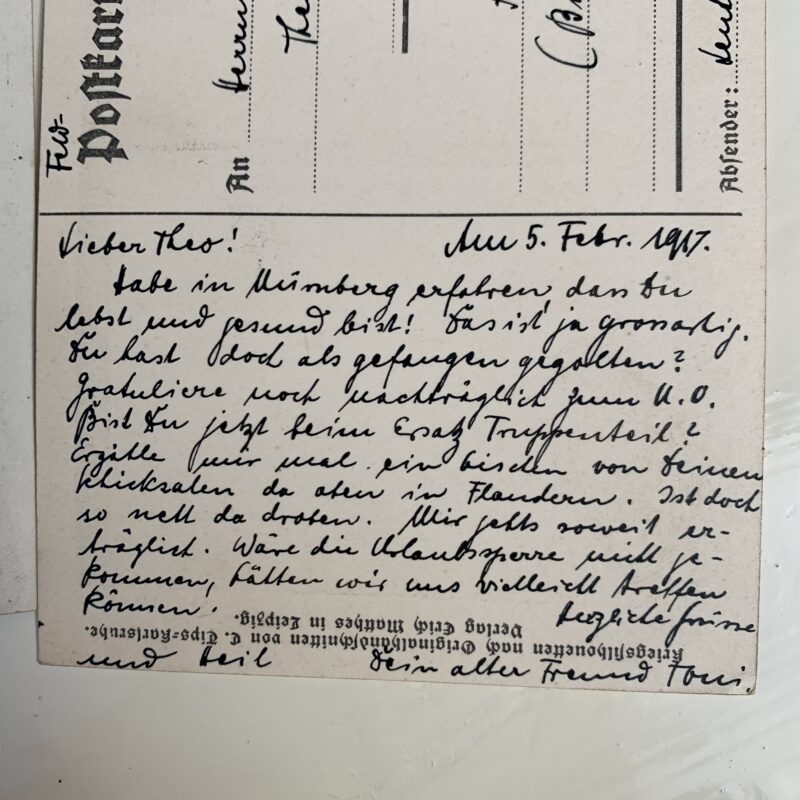 Feld-
Postkar
An Herrn
The
(B
Absender:
Lieber Theo! Am 5. Febr. 1917.
Habe in Nürnberg erfahren, dass Du
lebst und gesund bist! Das ist ja grossartig.
Du hast doch als gefangen gegolten?
Gratuliere noch nachträglich zum U.O.
Bist Du jetzt beim Ersatz Truppenteil?
Erzähle mir mal ein bischen von Deinen
Schicksalen da oben in Flandern. Ist doch
so nett da droben. Mir gehts soweit er-
träglich. Wäre die Urlaubssperre nicht ge-
kommen, hätten wir uns vielleicht treffen
können. Herzliche Grüsse
und Heil Dein alter Freund Toni.
Kriegssilhouetten nach Originalhandschnitten von E. Tips-Karlsruhe.
Verlag Erich Matthes in Leipzig.